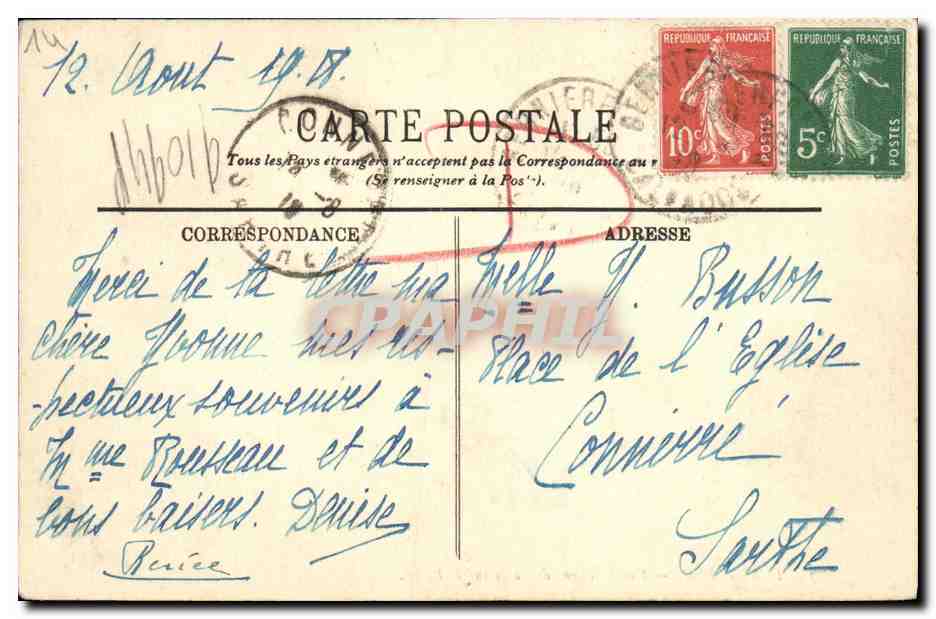 14
12 Aout 1918.
RÉPUBLIQUE FRANÇAISE
10c
POSTES
RÉPUBLIQUE FRANÇAISE
5c
POSTES
CARTE POSTALE
Tous les Pays étrangers n'acceptent pas la Correspondance au
(Se renseigner à la Pos
CORRESPONDANCE
Merci de ta lettre ma
chère Yvonne mes res-
-pectueux souvenirs à
Mme Rousseau et de
bons baisers. Denise
ADRESSE
Melle Y. Busson
Place de l'Eglise
Connerré
Sarthe
CPAPHIL